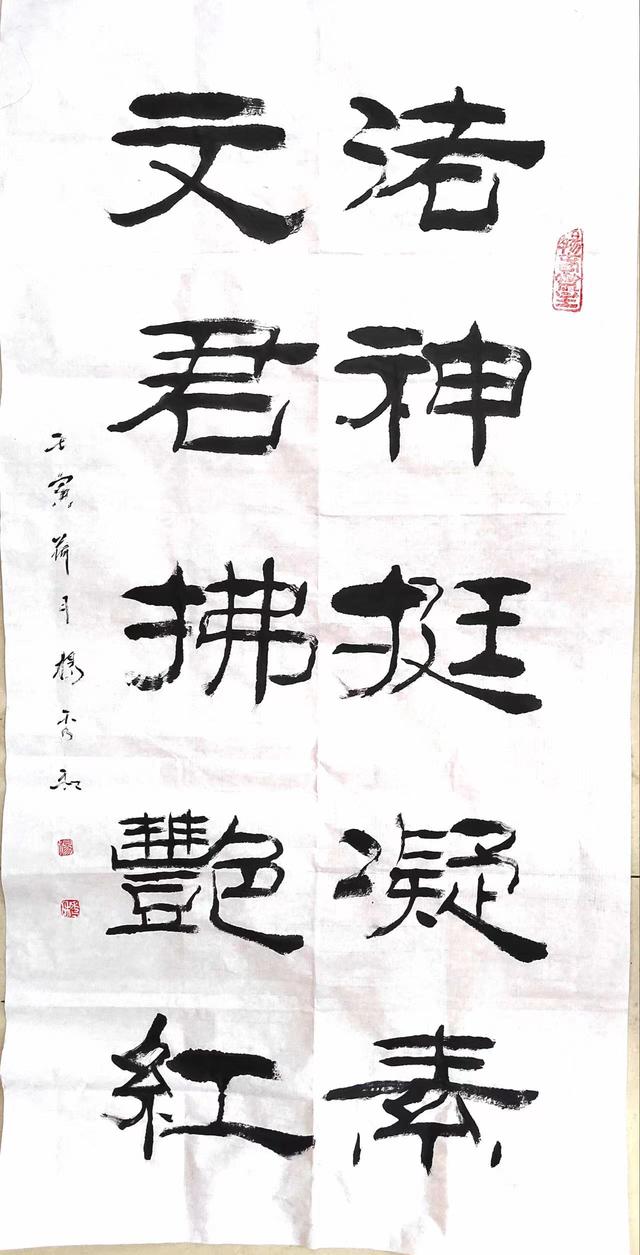 渚神挺凝素
文君拂艷紅
壬寅荷月楊秀和